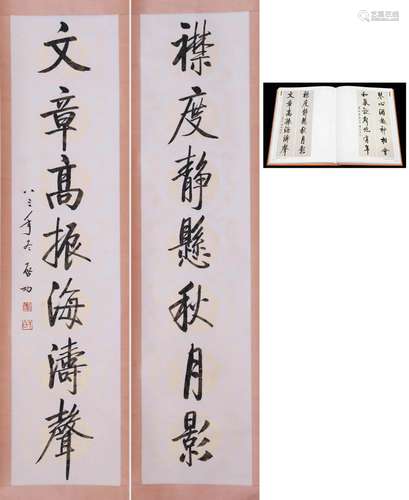 襟度静懸秋月影
文章高振海濤聲
八三年冬 啓功
琴心酒趣神相會
襟度静懸秋月影
文章高振海濤聲